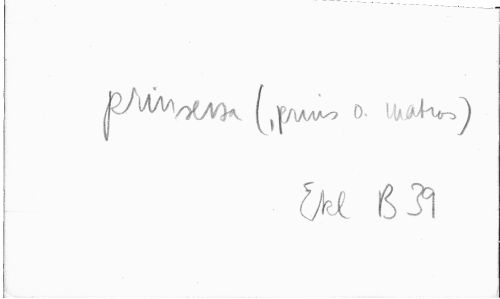 prinsessa (, prins o. matros)
Ekl B 39